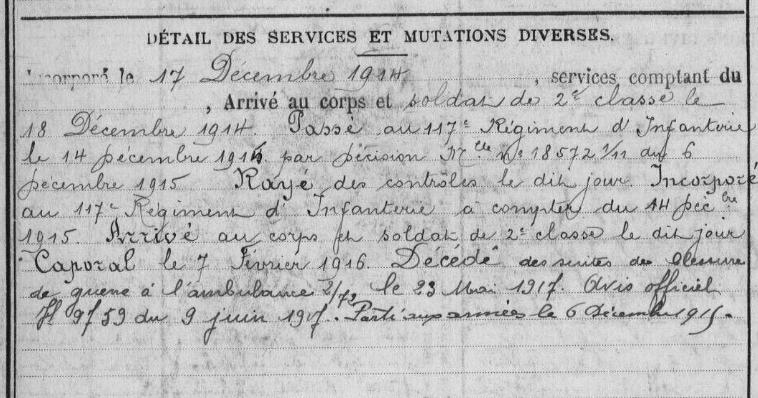 DÉTAIL DES SERVICES ET MUTATIONS DIVERSES.
Incorporé le 17 Décembre 1914, services comptant du
, Arrivé au corps et soldat de 2e classe le
18 Décembre 1914. Passé au 117e Régiment d'Infanterie
le 14 décembre 1915 par décision Mlle No 18572 1/11 du 6
Décembre 1915 Rayé des contrôles le dit jour Incorporé
au 117e Régiment d'Infanterie à compter du 14 Décbre
1915. Arrivé au corps et soldat de 2e classe le dit jour
Caporal le 7 Février 1916. Décédé des suites de blessure
de guerre à l'ambulance 2/72 le 23 Mai 1917. Avis officiel
9759 du 9 juin 1917. Parti aux armées le 6 Décembre 1915.